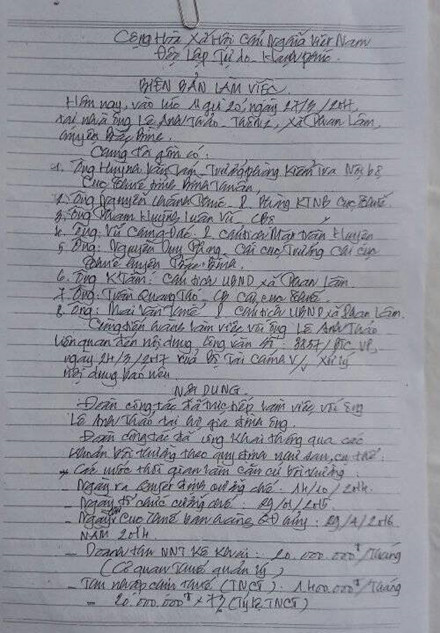 Cộng Hòa Xã Hội Chủ Nghĩa Việt Nam
Độc Lập Tự do Hạnh phúc
BIÊN BẢN LÀM VIỆC
Hôm nay, vào lúc giờ 20', ngày 27/3/2017
tại nhà ông Lê Anh Thảo. Thôn 2, xã Phan Lâm,
huyện Bắc Bình.
Chúng tôi gồm có:
1. Ông Huỳnh Văn Trưởng phòng Kiểm tra Nội bộ
Cục thuế tỉnh Bình Thuận,
2. Ông Nguyễn P. Phòng KTNB Cục thuế
3. Ông Phạm Huỳnh Luân Vũ, CBs
4. Ông: Vũ Chung P chủ tịch Mặt trận Huyện
5. Ông: Nguyễn Duy Chi cục Trưởng Chi cục
thuế huyện Bắc Bình.
6. Ông K'Tâm: Chủ tịch UBND xã Phan Lâm
7. Ông: Trần Quang Thọ, CB Cục thuế.
8. Ông: Mai Văn P chủ tịch UBND xã Phan Lâm.
Cùng tiến hành làm việc với ông Lê Anh Thảo
liên quan đến nội dung Công văn số: 3857/BTC VP,
ngày 24/3/2017 của Bộ Tài Chính V/v xử lý
nội dung báo nêu
NỘI DUNG
Đoàn công tác đã trực tiếp làm việc với ông
Lê Anh Thảo tại hộ gia đình ông.
Đoàn công tác đã công khai thông qua các
khoản bồi thường theo quy định như sau, cụ thể.
* Các mốc thời gian làm căn cứ bồi thường:
- Ngày ra quyết định cưỡng chế: 14/10/2014.
- Ngày tổ chức cưỡng chế: 29/01/2015
- Ngày Cục Thuế ban hành QĐ hủy: 29/1/2016
NĂM 2014
- Doanh thu NNT kê khai: 20.000.000đ/tháng
(Cơ quan thuế quản lý)
- Thu nhập chịu thuế (TNCT): 1.400.000đ/tháng
= 20.000.000đ x 7% (Tỷ lệ TNCT)